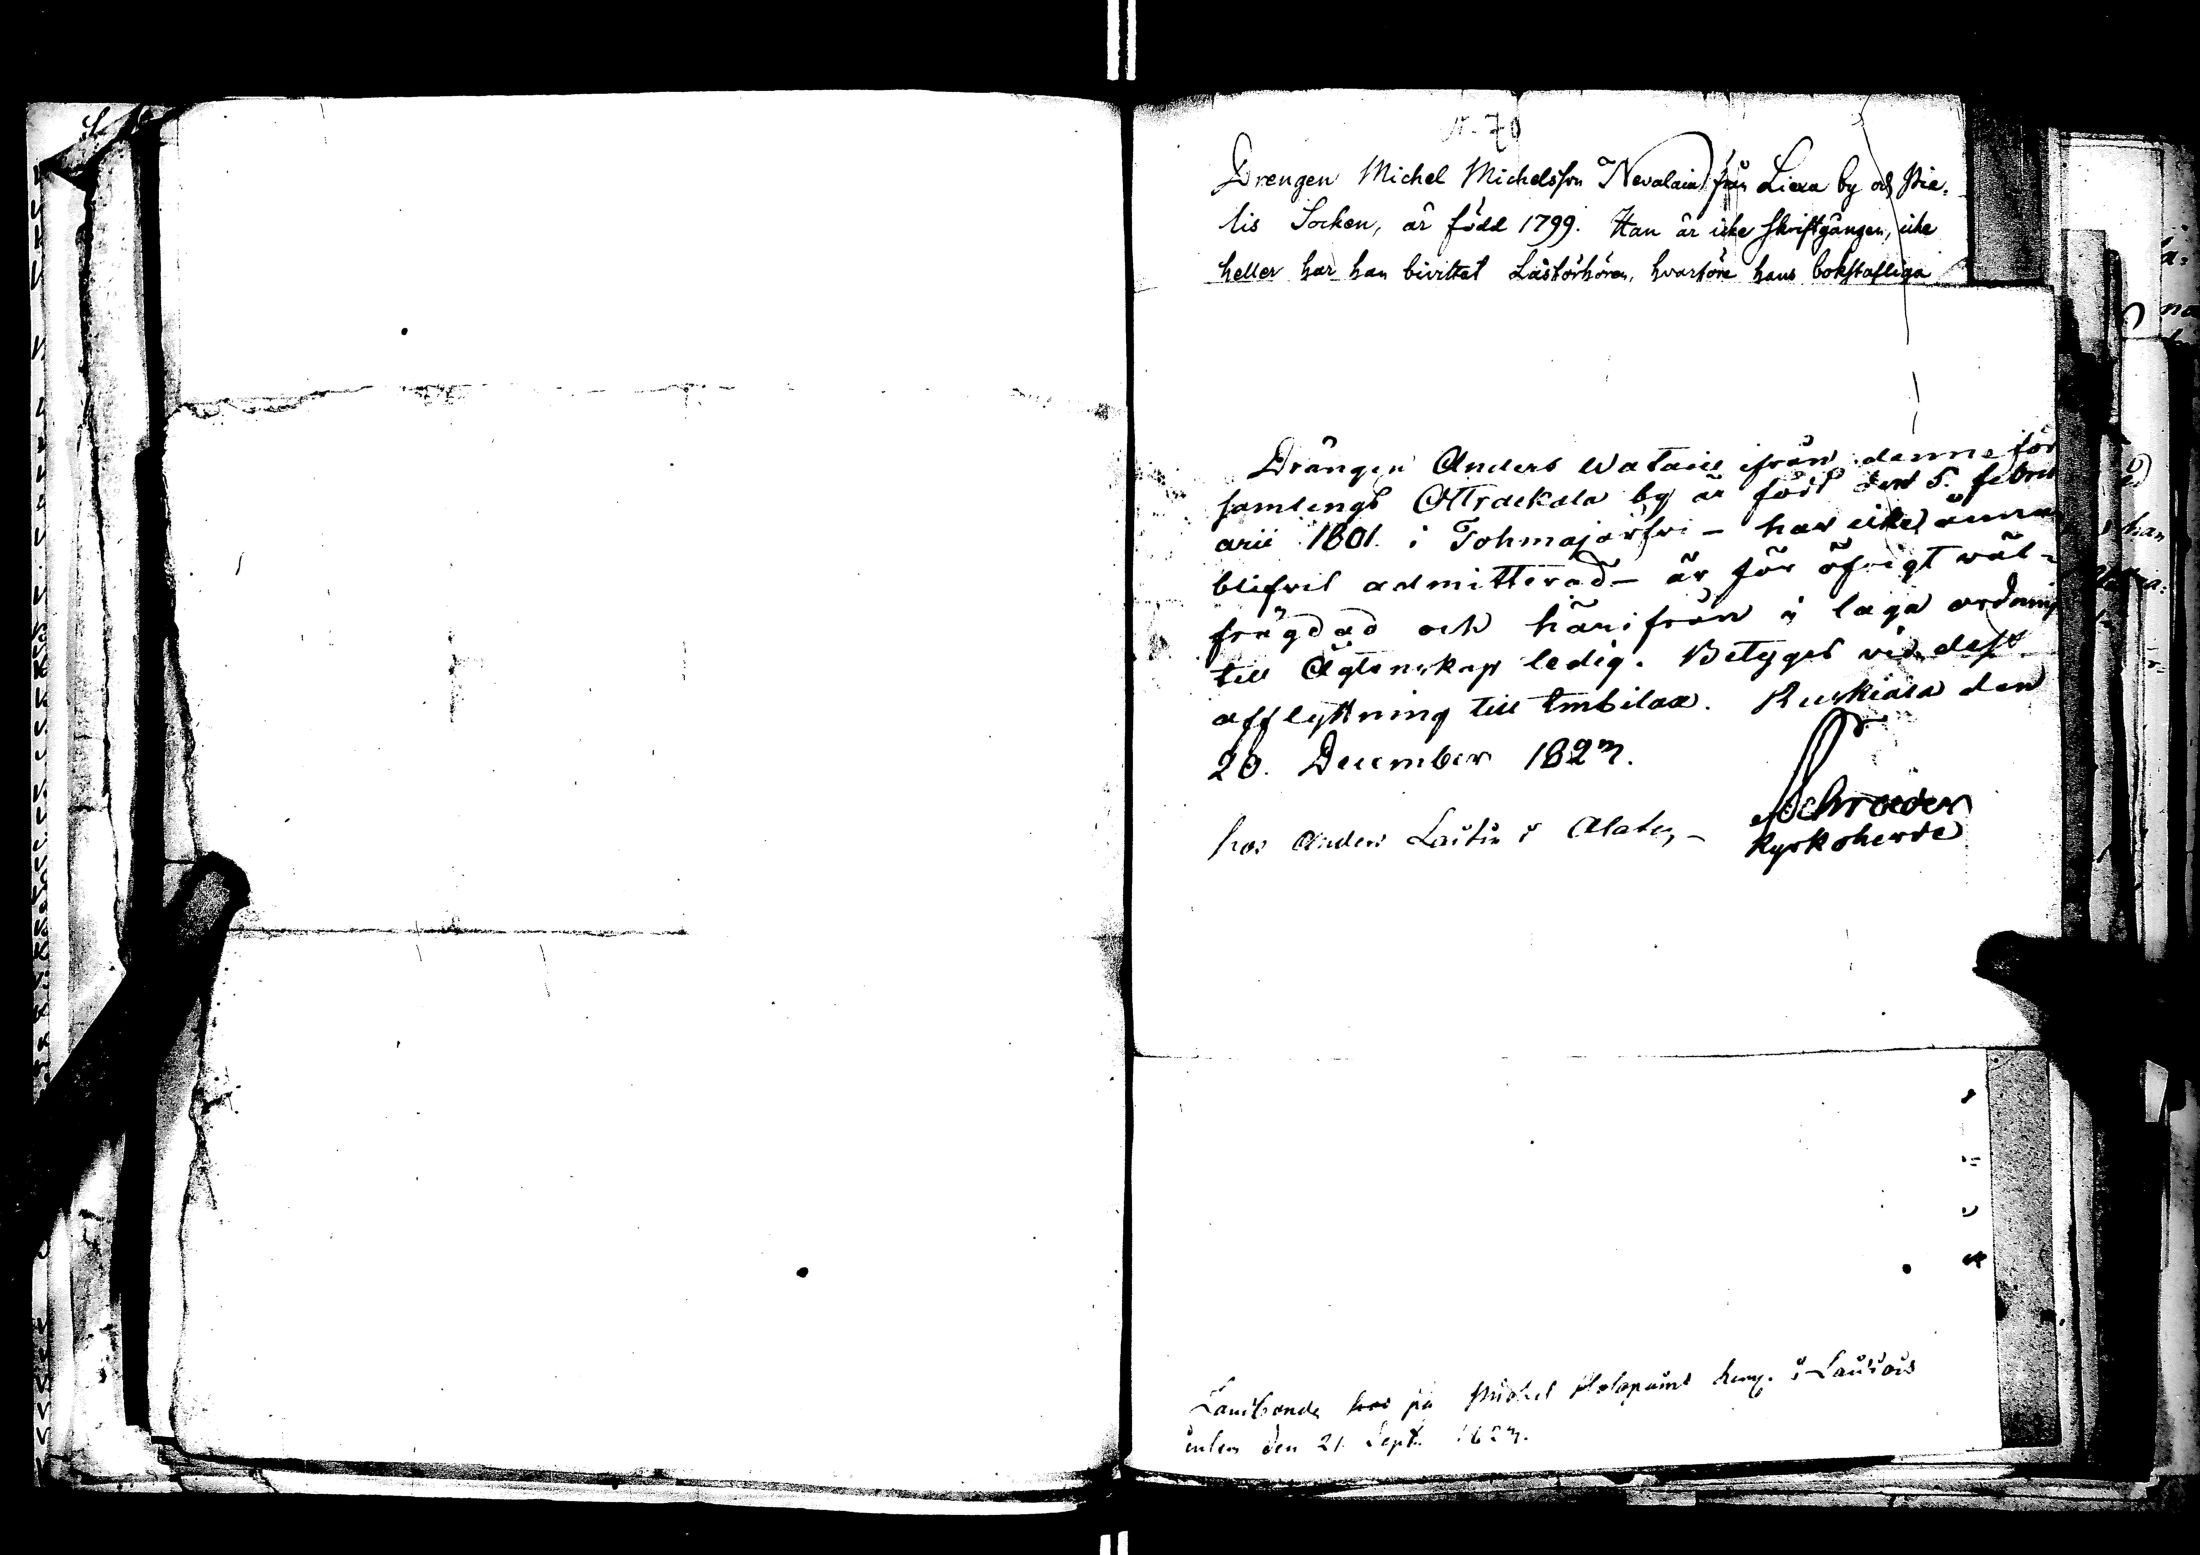 N. 70
Drengen Michel Michelsson Nevalain från Liexa by och Pie-
lis Socken, är född 1799. Han är icke skriftgången, icke
heller har han bivistat Läsförhören, hvarföre hans bokstafliga
Drängen Anders Watain ifrån denne för
samlings Ottrackala by är född den 5. febru
arii 1801 i Tohmajärfvi - har icke ännu
blifvit admitterad - är för öfrigt väl-
frägdad och härifrån i laga ordning
till Ägtenskap ledig. Betygas vid dess
afflyttning till Imbilax. Ruskiala den
20. December 1823.
Schroeder
Kyrkoherde
hos Anders Laitin i Alatu -
på Michel i
den 21 Sept. 1823.